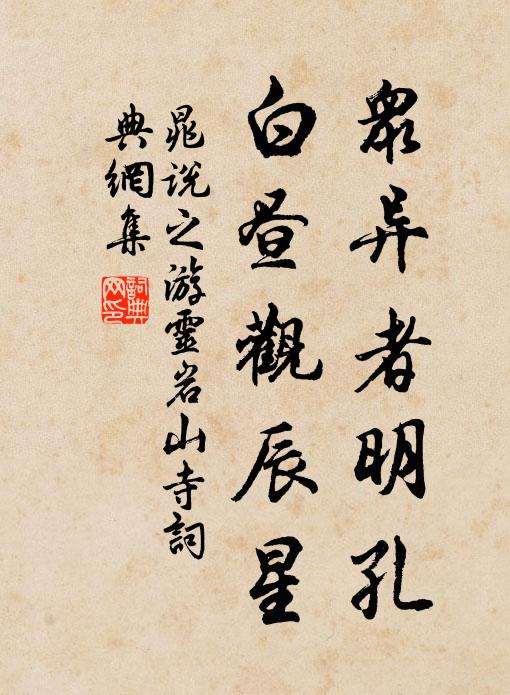 眾异者明孔
白昼觀辰星
晁说之游靈岩山寺詞
典網集
詞典网印